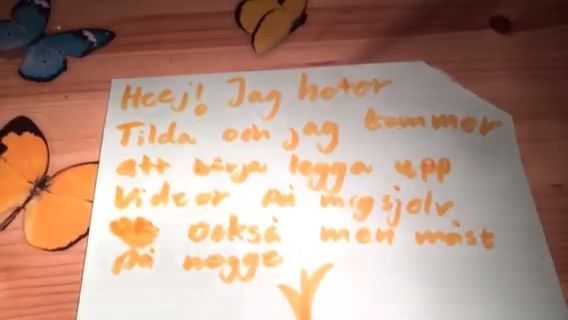 Heej! Jag heter
Tilda och jag kommer
att börja lägga upp
Videor på mig sjelv
också men mäst
på nagge